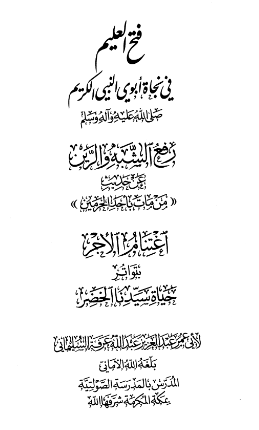 فتح العليم
في نجاة أبوي النبي الكريم
صلى الله عليه وآله وسلم
رفع الشبه والرين
عن حديث
« من مات بأحد الحرمين »
اغتنام الأجر
بتواتر
حياة سيدنا الخضر
لأبي عمر عبد العزيز عبد الله عرفة السليماني
بلغه الله الأماني
المدرس بالمدرسة الصولتية
بمكة المكرمة شرفها الله